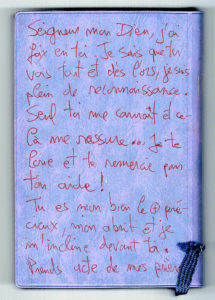 Seigneur mon Dieu, j'ai
foi en toi. Je sais que tu
vois tout et dès lors, je suis
plein de reconnaissance.
Seul toi me connaît et ce-
là me rassure... Je te
loue et te remercie pour
ton aide !
Tu es mon bien le + pré-
cieux, mon abri et je
m'incline devant toi.
Prends acte de mes prières